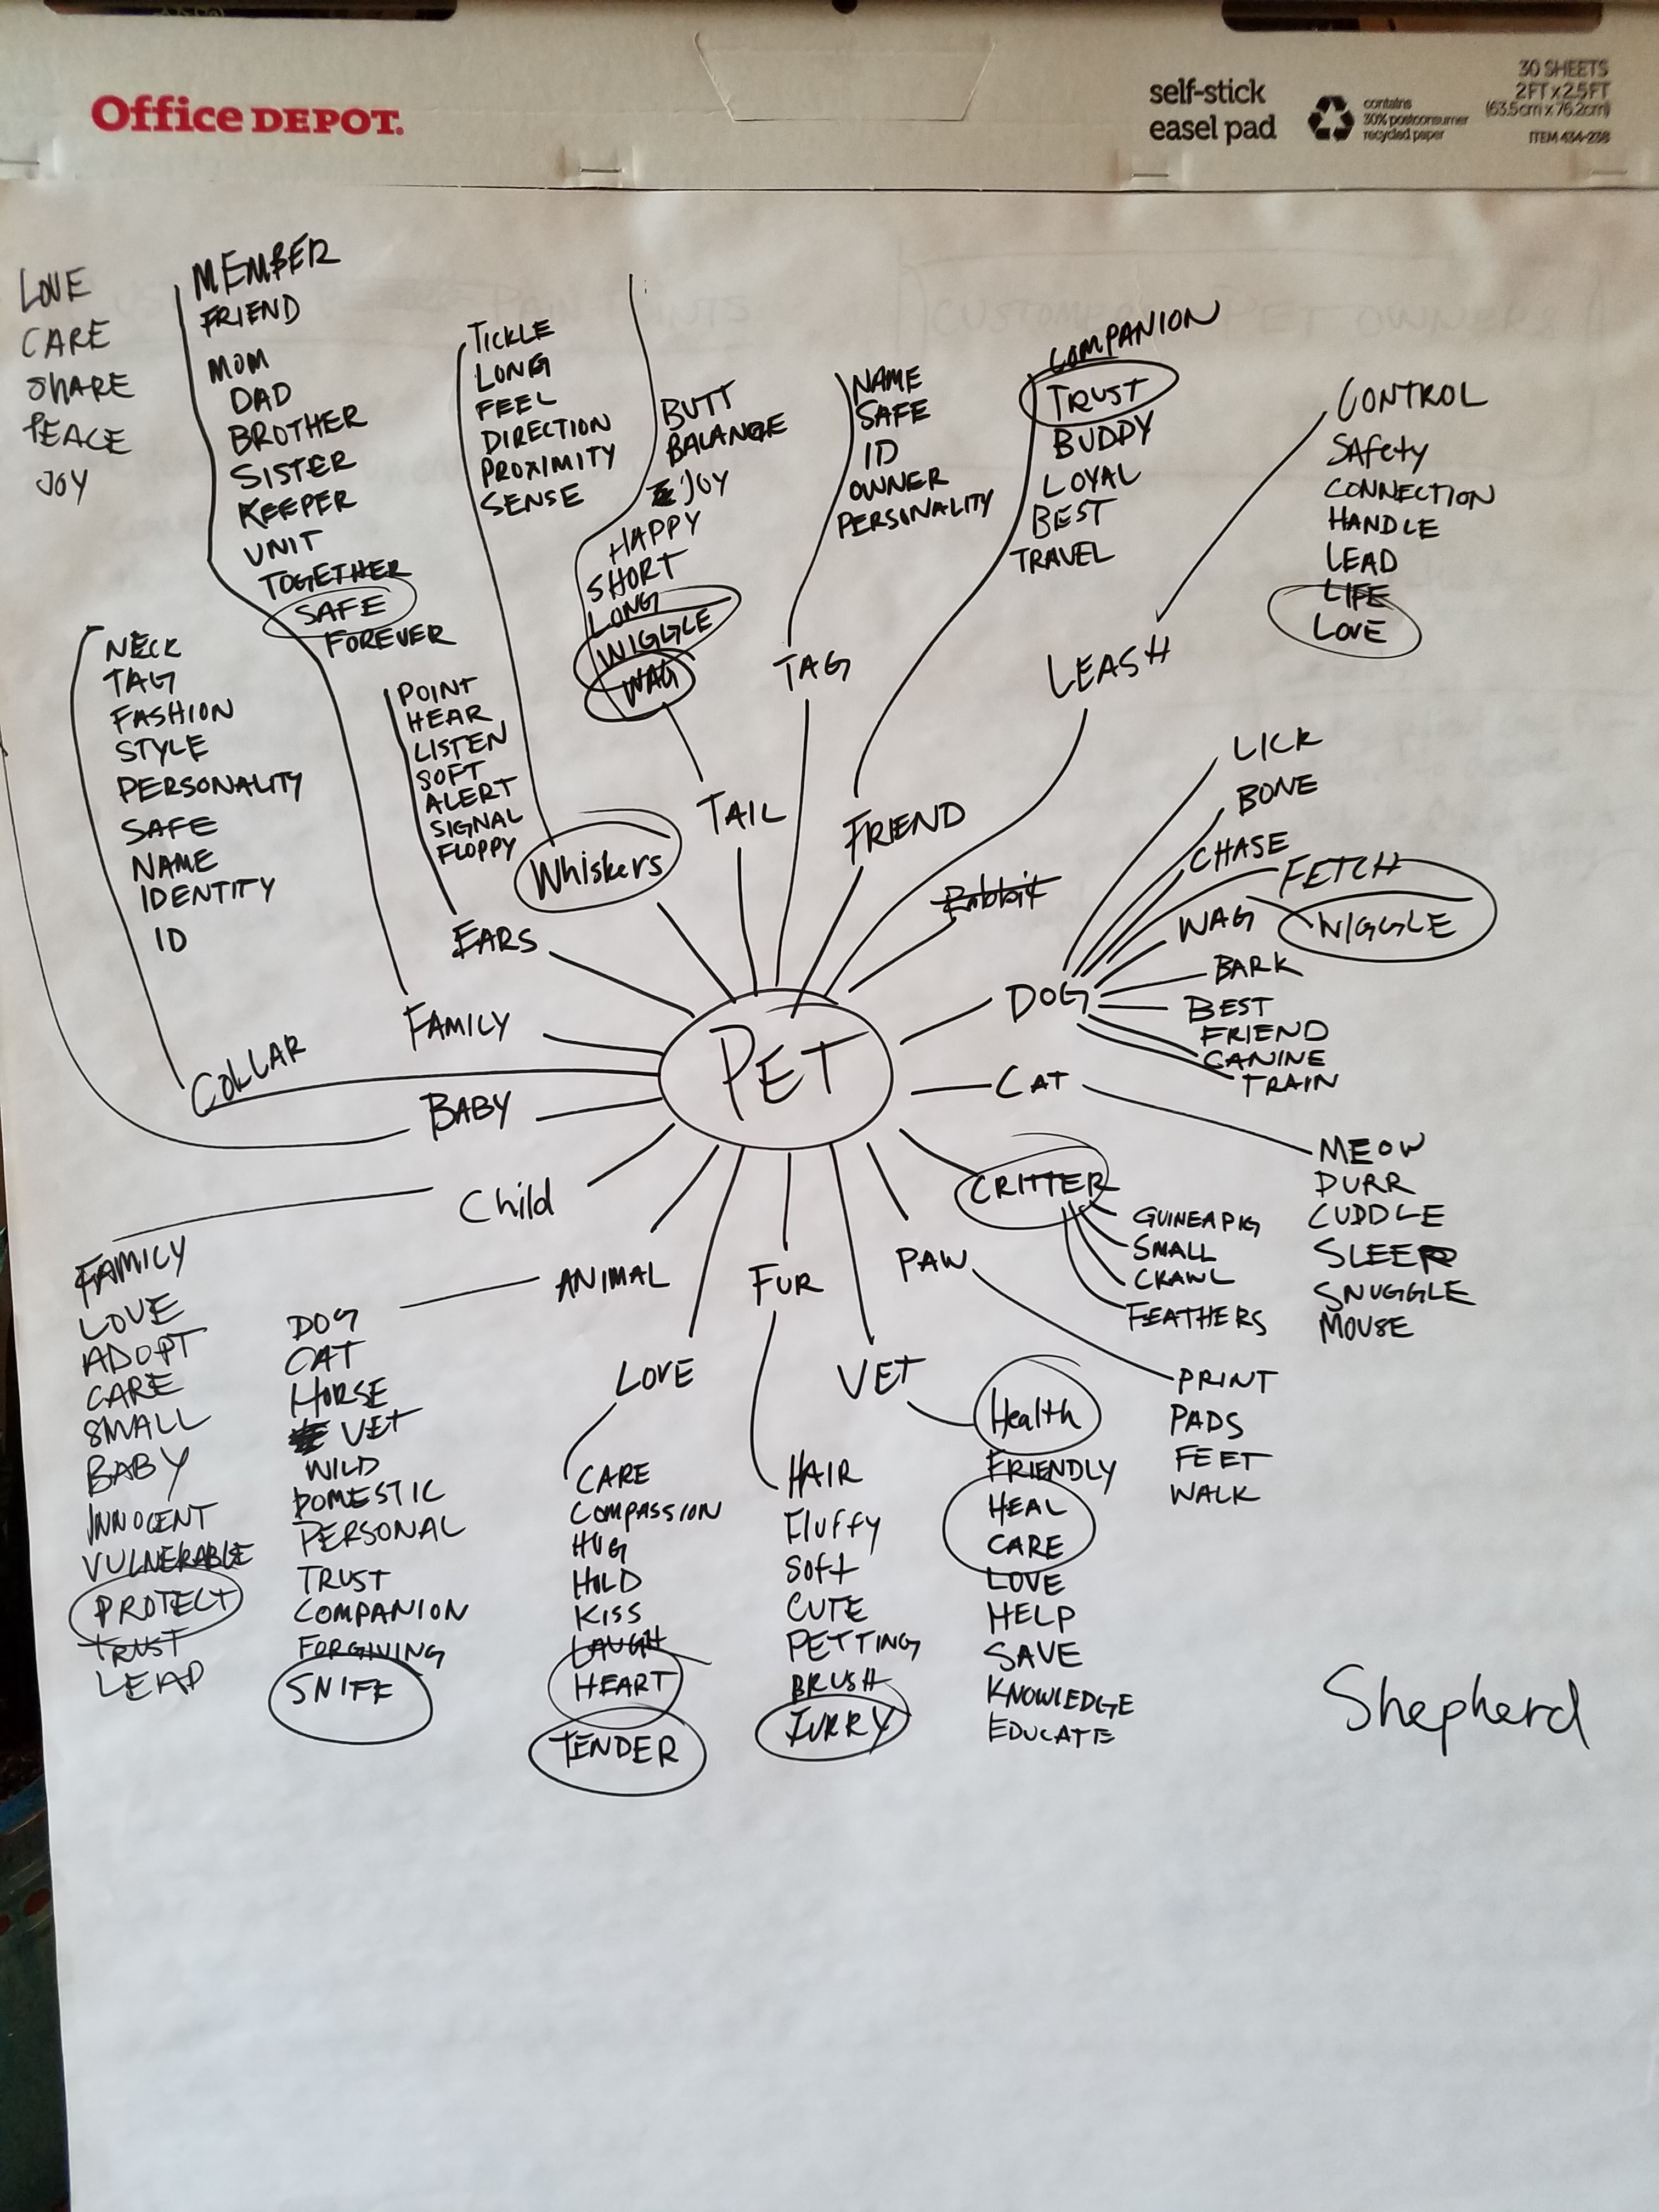 Office DEPOT.
self-stick
easel pad
contains
30% postconsumer
recycled paper
30 SHEETS
2FT x 2.5FT
(63.5cm x 76.2cm)
ITEM 434-238
LOVE
CARE
SHARE
PEACE
JOY
MEMBER
FRIEND
MOM
DAD
BROTHER
SISTER
KEEPER
UNIT
TOGETHER
SAFE
FOREVER
TICKLE
LONG
FEEL
DIRECTION
PROXIMITY
SENSE
BUTT
BALANCE
JOY
HAPPY
SHORT
LONG
WIGGLE
WAG
NAME
SAFE
ID
OWNER
PERSONALITY
COMPANION
TRUST
BUDDY
LOYAL
BEST
TRAVEL
CONTROL
SAFETY
CONNECTION
HANDLE
LEAD
LIFE
LOVE
NECK
TAG
FASHION
STYLE
PERSONALITY
SAFE
NAME
IDENTITY
ID
POINT
HEAR
LISTEN
SOFT
ALERT
SIGNAL
FLOPPY
Whiskers
TAIL
TAG
FRIEND
LEASH
Rabbit
EARS
FAMILY
COLLAR
BABY
PET
DOG
LICK
BONE
CHASE
FETCH
WAG
WIGGLE
BARK
BEST
FRIEND
CANINE
TRAIN
CAT
MEOW
PURR
CUDDLE
SLEEP
SNUGGLE
MOUSE
CRITTER
GUINEA PIG
SMALL
CRAWL
FEATHERS
Child
FAMILY
LOVE
ADOPT
CARE
SMALL
BABY
INNOCENT
VULNERABLE
PROTECT
TRUST
LEAP
ANIMAL
DOG
CAT
HORSE
VET
WILD
DOMESTIC
PERSONAL
TRUST
COMPANION
FORGIVING
SNIFF
LOVE
CARE
COMPASSION
HUG
HOLD
KISS
LAUGH
HEART
TENDER
FUR
HAIR
Fluffy
Soft
CUTE
PETTING
BRUSH
FURRY
VET
Health
FRIENDLY
HEAL
CARE
LOVE
HELP
SAVE
KNOWLEDGE
EDUCATE
PAW
PRINT
PADS
FEET
WALK
Shepherd